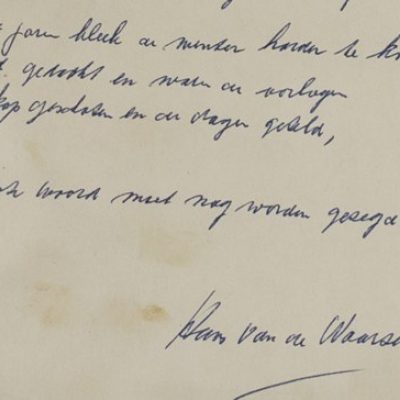 jaren bleek de winter harder te
gedacht en waren de oorlogen
gesloten en de dagen geteld,
woord moet nog worden gezegd
Hans van de Waarse